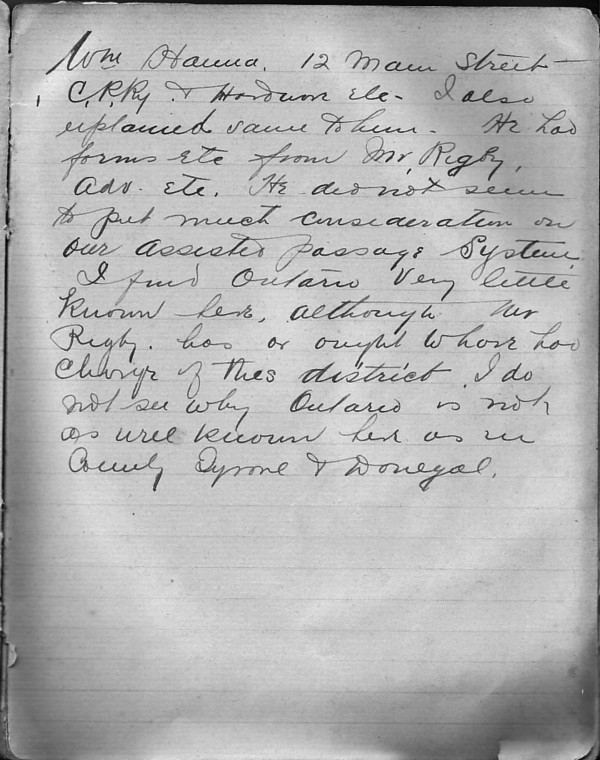 Wm Hanna. 12 Main Street
C.P.Ry. & Hardware Etc. I also
explained same to him. He had
forms Etc from Mr, Rigby,
Adv. Etc. He did not seem
to put much consideration on
our Assisted passage System.
I find Ontario Very little
known here, although Mr
Rigby. has or ought to have had
Charge of this district. I do
not see why Ontario is not
as well known here as in
County Tyrone & Donegal.